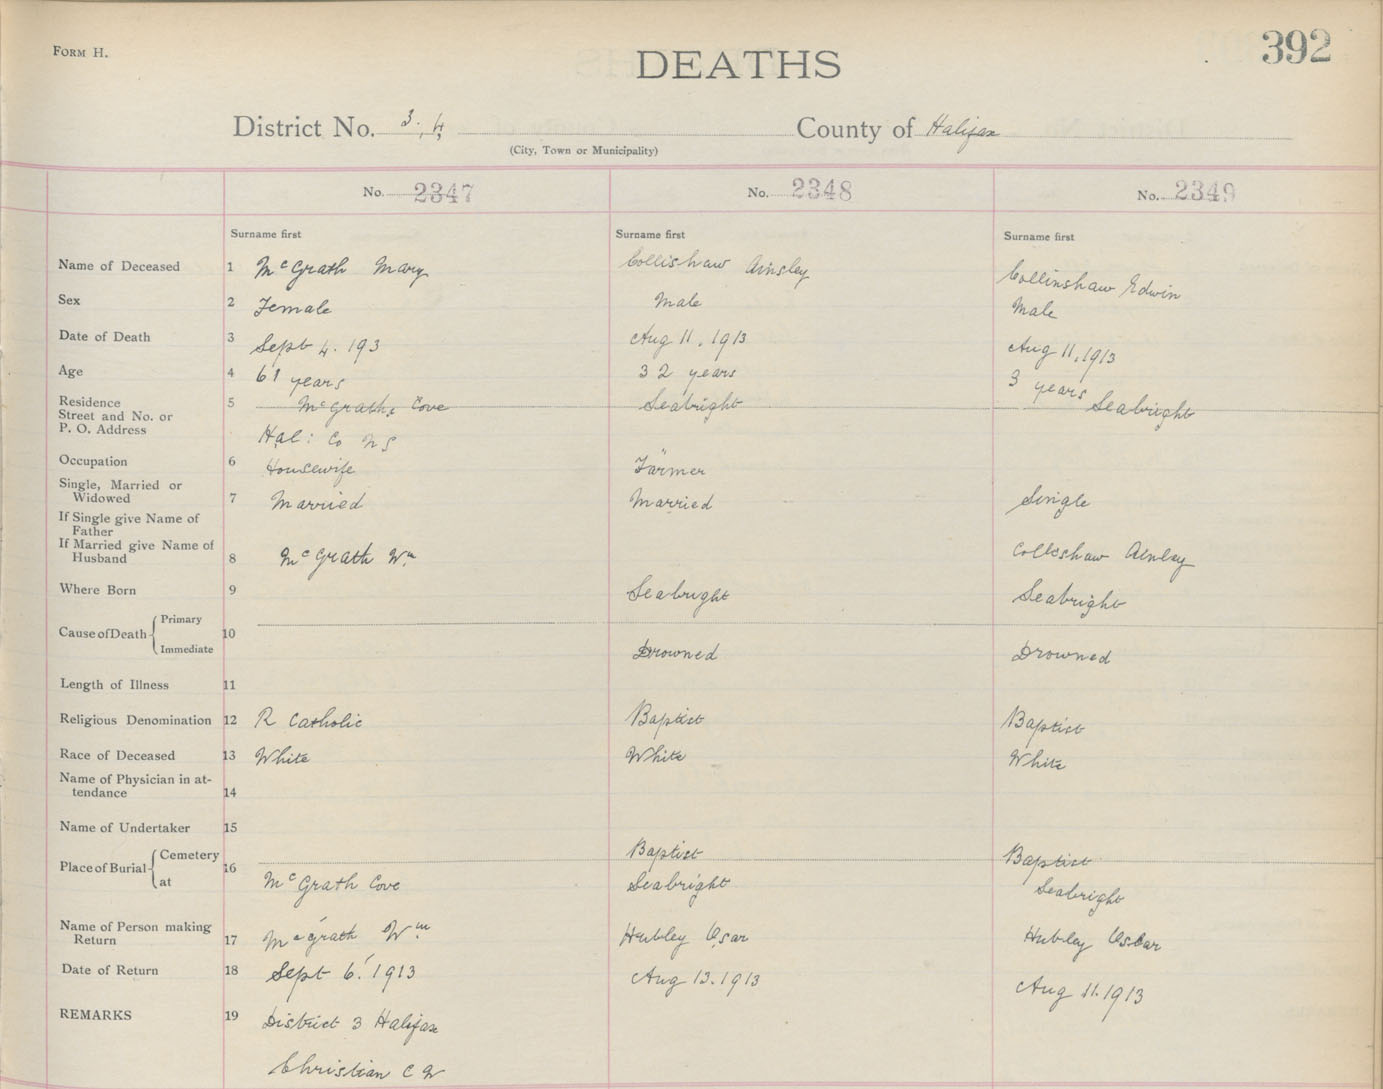 FORM H.
DEATHS
392
District No. 3.,4,
County of Halifax
(City, Town or Municipality)
No. 2347
No. 2348
No. 2349
Surname first
Surname first
Surname first
Name of Deceased 1 McGrath Mary
Collishaw Ainsley
Collinshaw Edwin
Sex 2 Female
Male
Male
Date of Death 3 Sept 4. 193
Aug 11, 1913
Aug 11, 1913
Age 4 61 years
32 years
3 years
Residence 5 McGraths Cove
Seabright
Seabright
Street and No. or
P. O. Address
Hal: Co N S
Occupation 6 Housewife
Farmer
Single, Married or
Widowed 7 Married
Married
Single
If Single give Name of
Father
If Married give Name of
Husband 8 McGrath Wm
Colleshaw Ainley
Where Born 9
Seabright
Seabright
Cause of Death Primary
10
Immediate
Drowned
Drowned
Length of Illness 11
Religious Denomination 12 R Catholic
Baptist
Baptist
Race of Deceased 13 White
White
White
Name of Physician in at-
tendance 14
Name of Undertaker 15
Place of Burial Cemetery
16
Baptist
Baptist
at
McGrath Cove
Seabright
Seabright
Name of Person making
Return 17 McGrath Wm
Hubley Osar
Hubley Oscar
Date of Return 18 Sept 6. 1913
Aug 13. 1913
Aug 11. 1913
REMARKS 19 District 3 Halifax
Christian C W